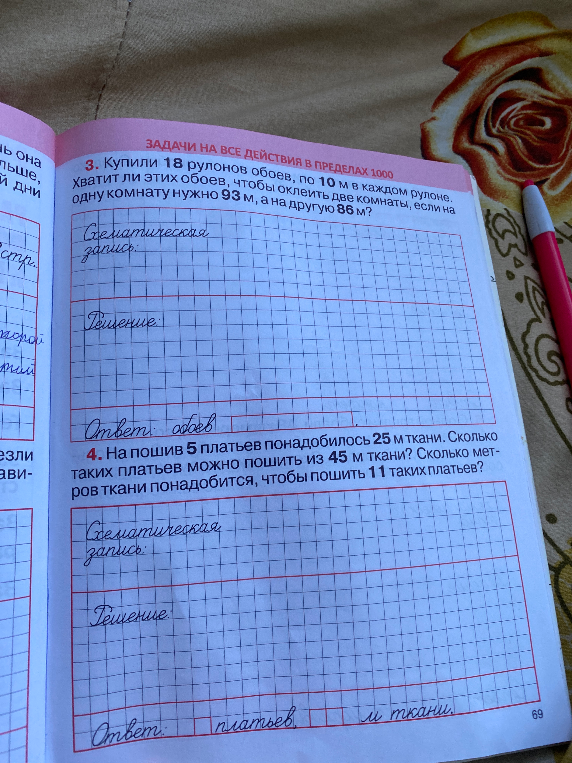 нь она
льше,
й дни
стр.
езли
ави-
ЗАДАЧИ НА ВСЕ ДЕЙСТВИЯ В ПРЕДЕЛАХ 1000
3. Купили 18 рулонов обоев, по 10 м в каждом рулоне.
Хватит ли этих обоев, чтобы оклеить две комнаты, если на
одну комнату нужно 93 м, а на другую 86 м?
Схематическая
запись:
Решение:
Ответ: обоев
4. На пошив 5 платьев понадобилось 25 м ткани. Сколько
таких платьев можно пошить из 45 м ткани? Сколько мет-
ров ткани понадобится, чтобы пошить 11 таких платьев?
Схематическая
запись:
Решение:
Ответ: платьев, м ткани.
69